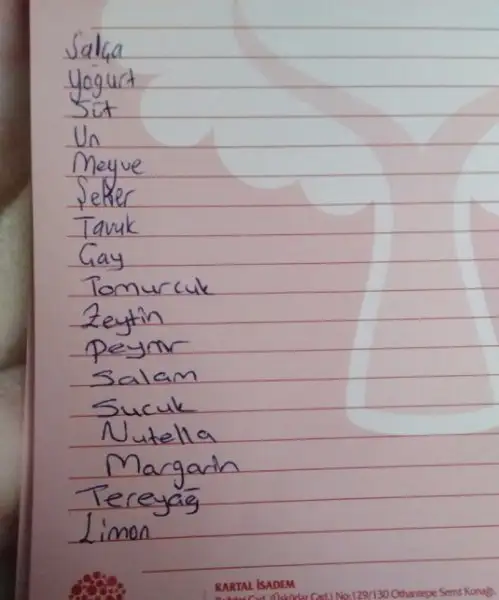 Salça
Yoğurt
Süt
Un
Meyve
Şeker
Tavuk
Çay
Tomurcuk
Zeytin
Peynir
Salam
Sucuk
Nutella
Margarin
Tereyağ
Limon
KARTAL İSADEM
Cad. (Üsküdar Cad.) No:129/130 Orhantepe Semt Konağı